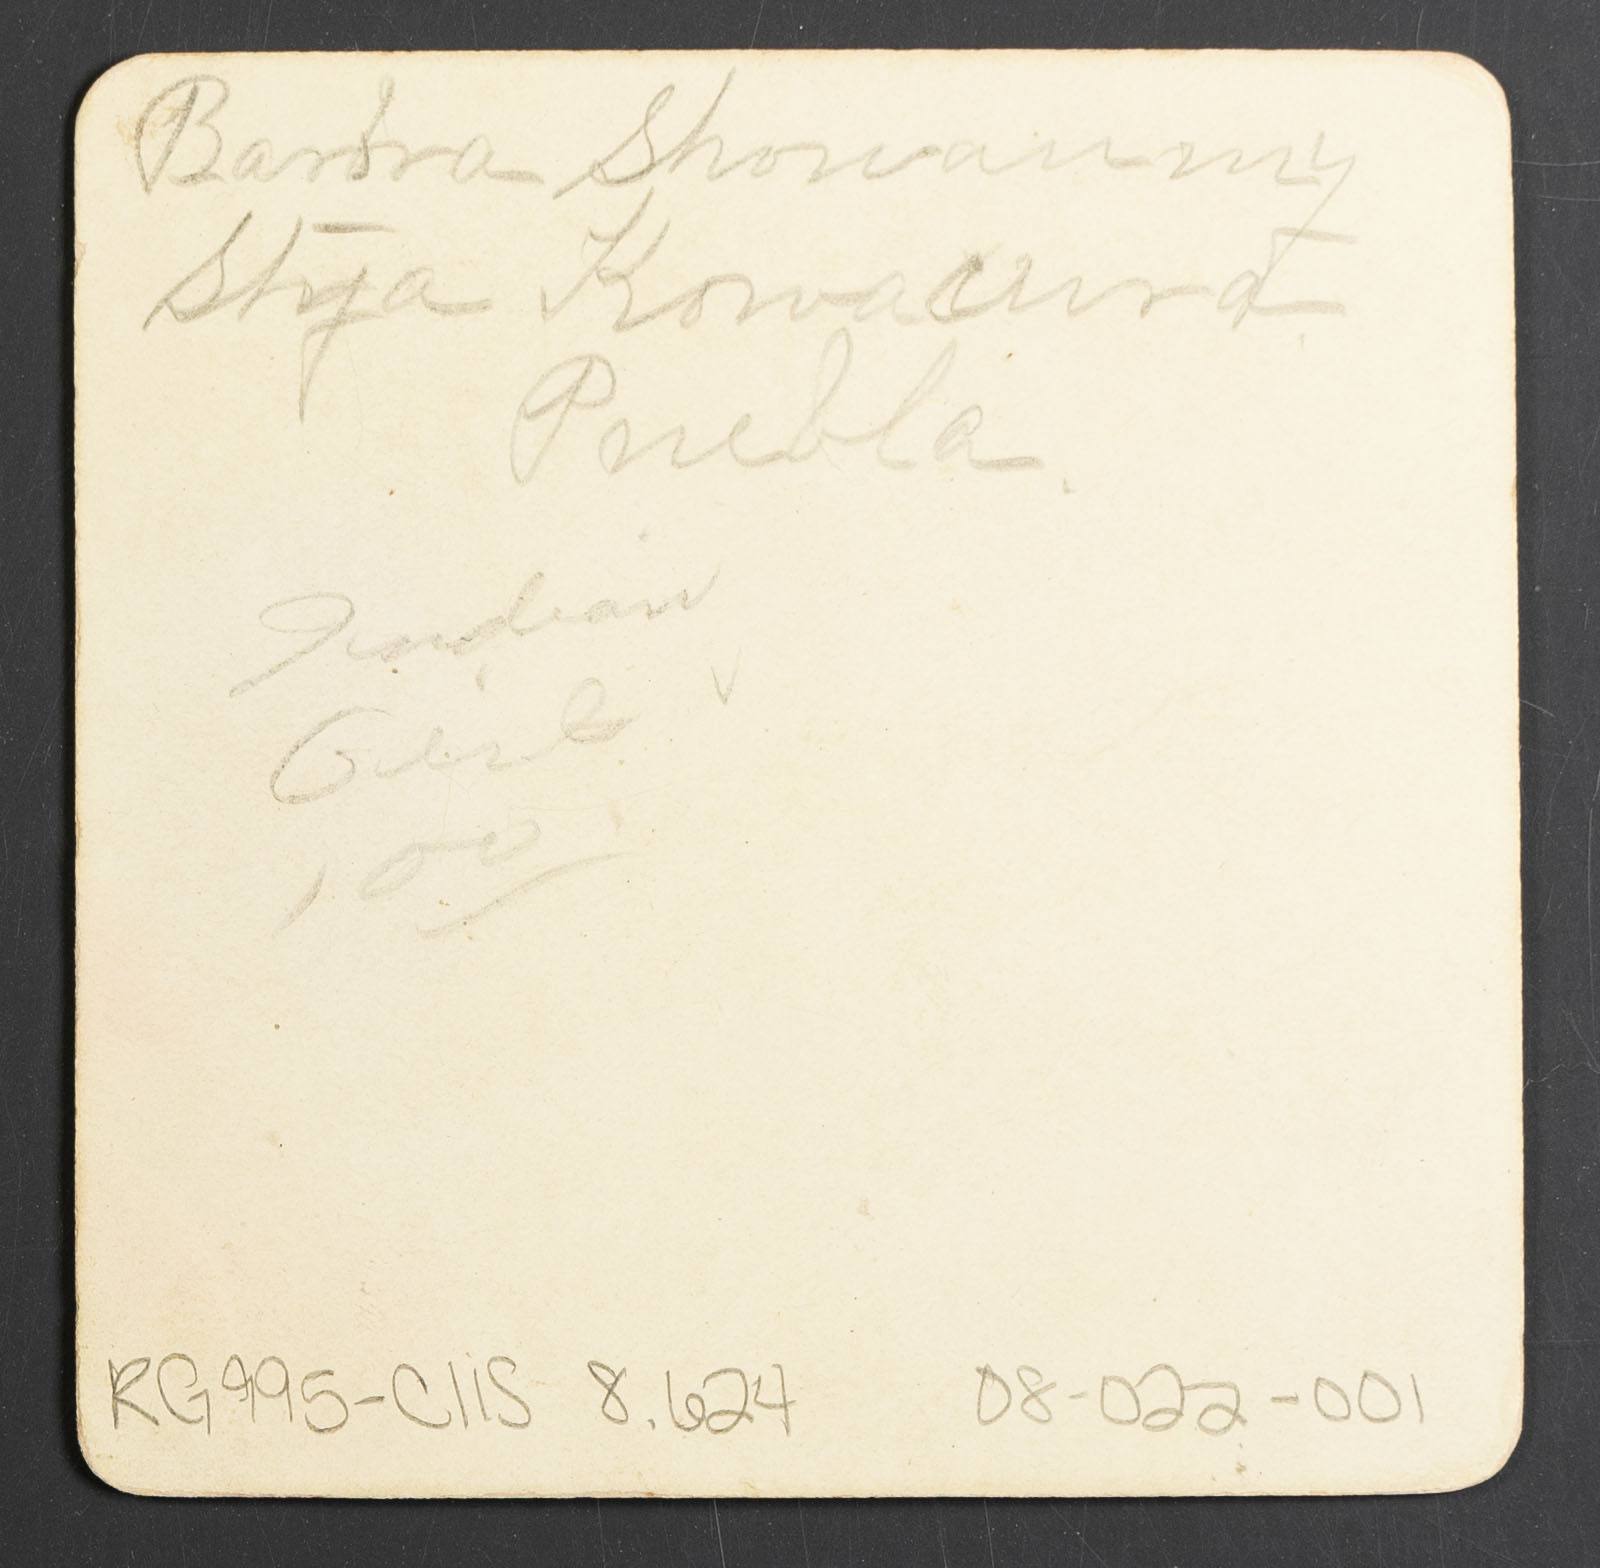 Barbra Showaunmy
Stiya Kowacura
Puebla
Indian
Girls
1 00
RG995-CIIS 8.624 08-022-001